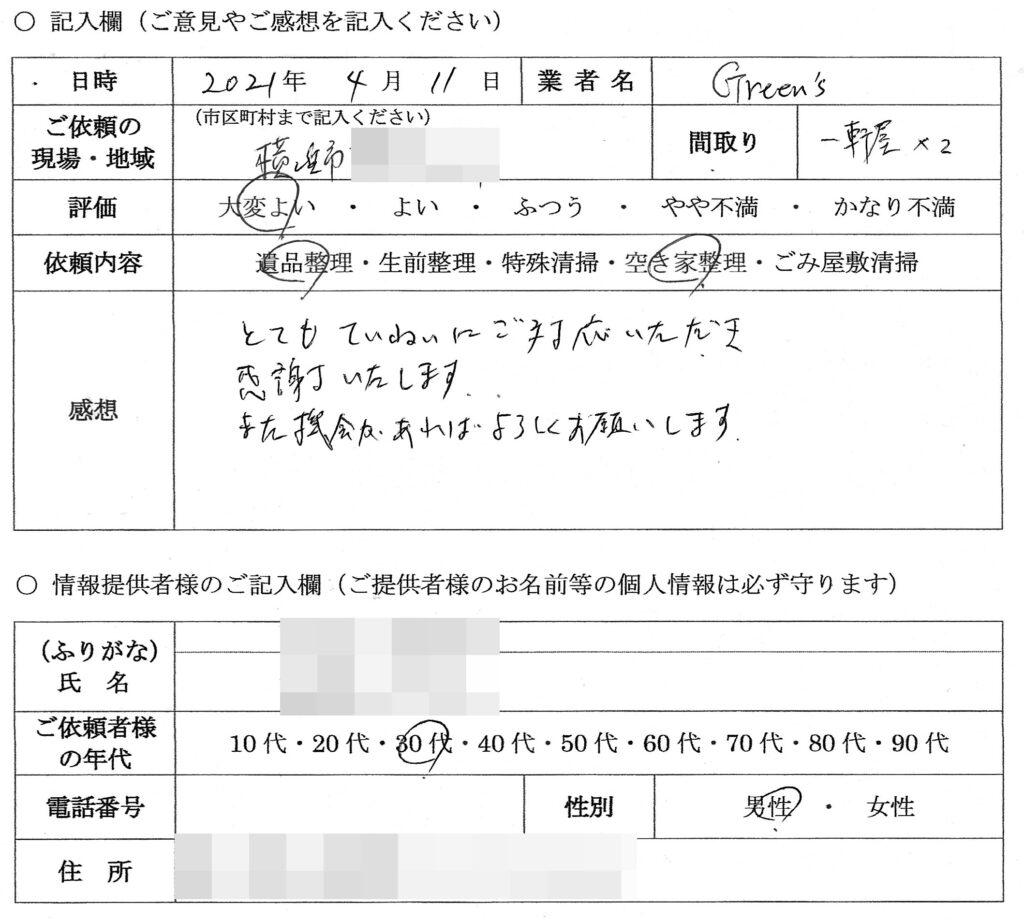 ○ 記入欄（ご意見やご感想を記入ください）
日時 2021年 4月 11日 業者名 Green's
ご依頼の現場・地域 （市区町村まで記入ください） 横浜市 間取り 一軒屋×2
評価 大変よい ・ よい ・ ふつう ・ やや不満 ・ かなり不満
依頼内容 遺品整理・生前整理・特殊清掃・空き家整理・ごみ屋敷清掃
感想
とてもていねいにご対応いただき
感謝いたします.
また機会があればよろしくお願いします.
○ 情報提供者様のご記入欄（ご提供者様のお名前等の個人情報は必ず守ります）
（ふりがな）
氏 名
ご依頼者様の年代 10代・20代・30代・40代・50代・60代・70代・80代・90代
電話番号 性別 男性 ・ 女性
住 所